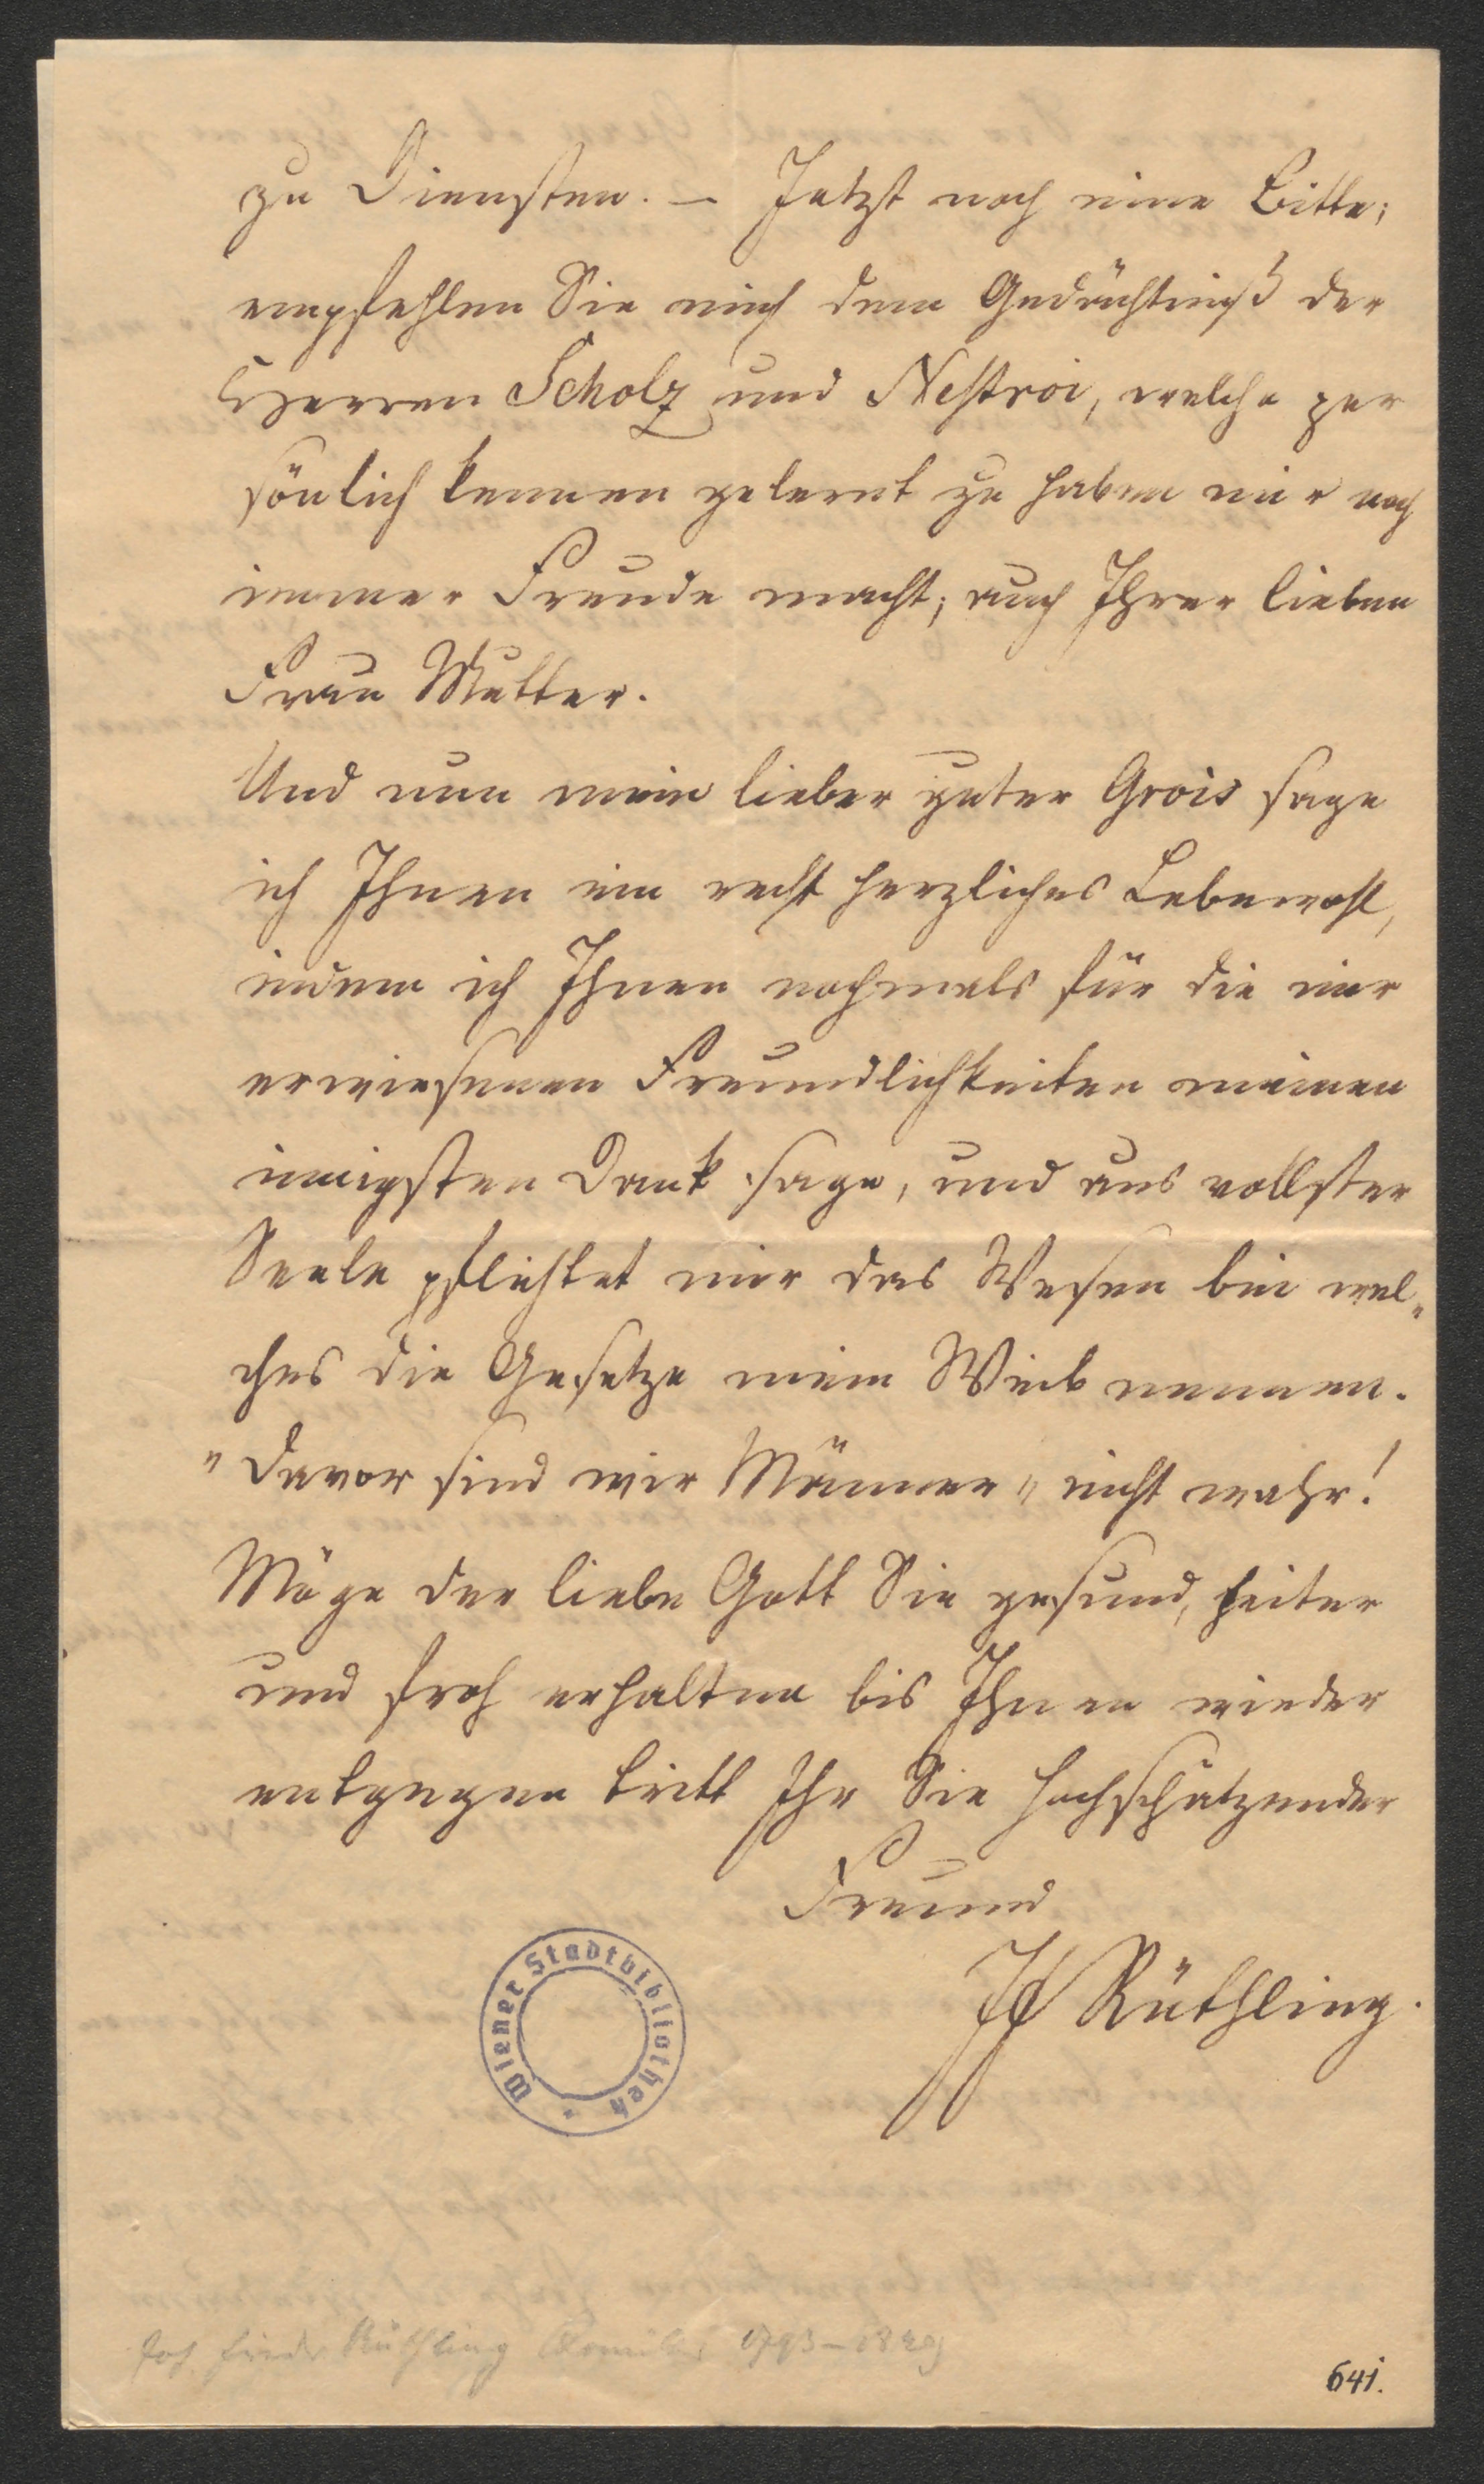 zu Diensten. — Jetzt noch eine Bitte;
empfehlen Sie mich dem Gedächtniß der
Herren Scholz und Nestroi, welche per
sönlich kennen gelernt zu haben mir noch
immer Freude macht; auch Ihrer lieben
Frau Mutter.
Und nun mein lieber guter Grois sage
ich Ihnen ein recht herzliches Lebewohl,
indem ich Ihnen nochmals für die mir
erwiesenen Freundlichkeiten meinen
innigsten Dank sage, und aus vollster
Seele pflichtet mir das Wesen bei wel„
ches die Gesetze mein Weib nennen.
"Davor sind wir Männer" nicht wahr!
Möge der liebe Gott Sie gesund, heiter
und froh erhalten bis Ihnen wieder
entgegen tritt Ihr Sie hochschätzender
Freund
Rüthling.
Wiener Stadtbibliothek
Joh. Friedr. Rüthling Komiker 1793–1849
641.